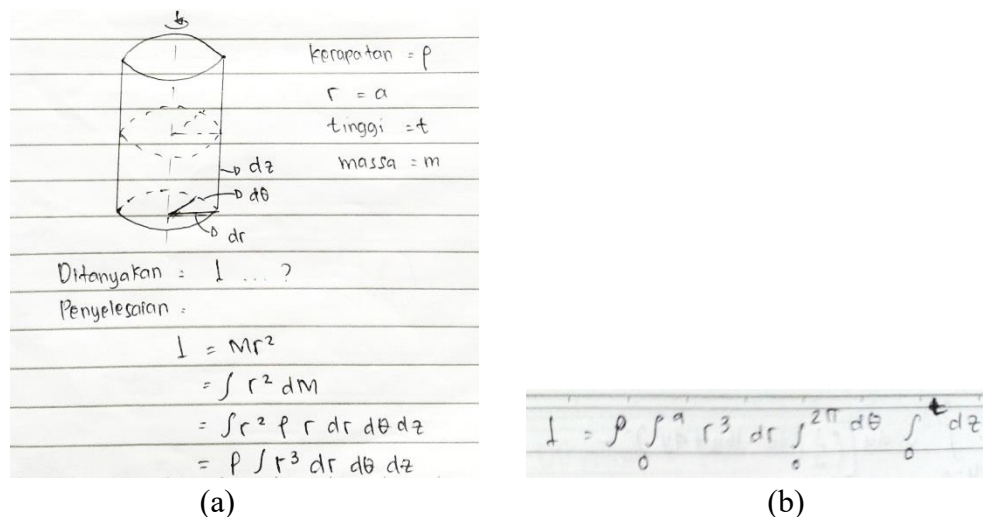 kerapatan = ρ
r = a
tinggi = t
massa = m
dz
dθ
dr
Ditanyakan = I ... ?
Penyelesaian =
I = Mr²
= ∫ r² dM
= ∫ r² ρ r dr dθ dz
= ρ ∫ r³ dr dθ dz
(a)
I = ρ ∫₀ᵃ r³ dr ∫₀²π dθ ∫₀ᵗ dz
(b)